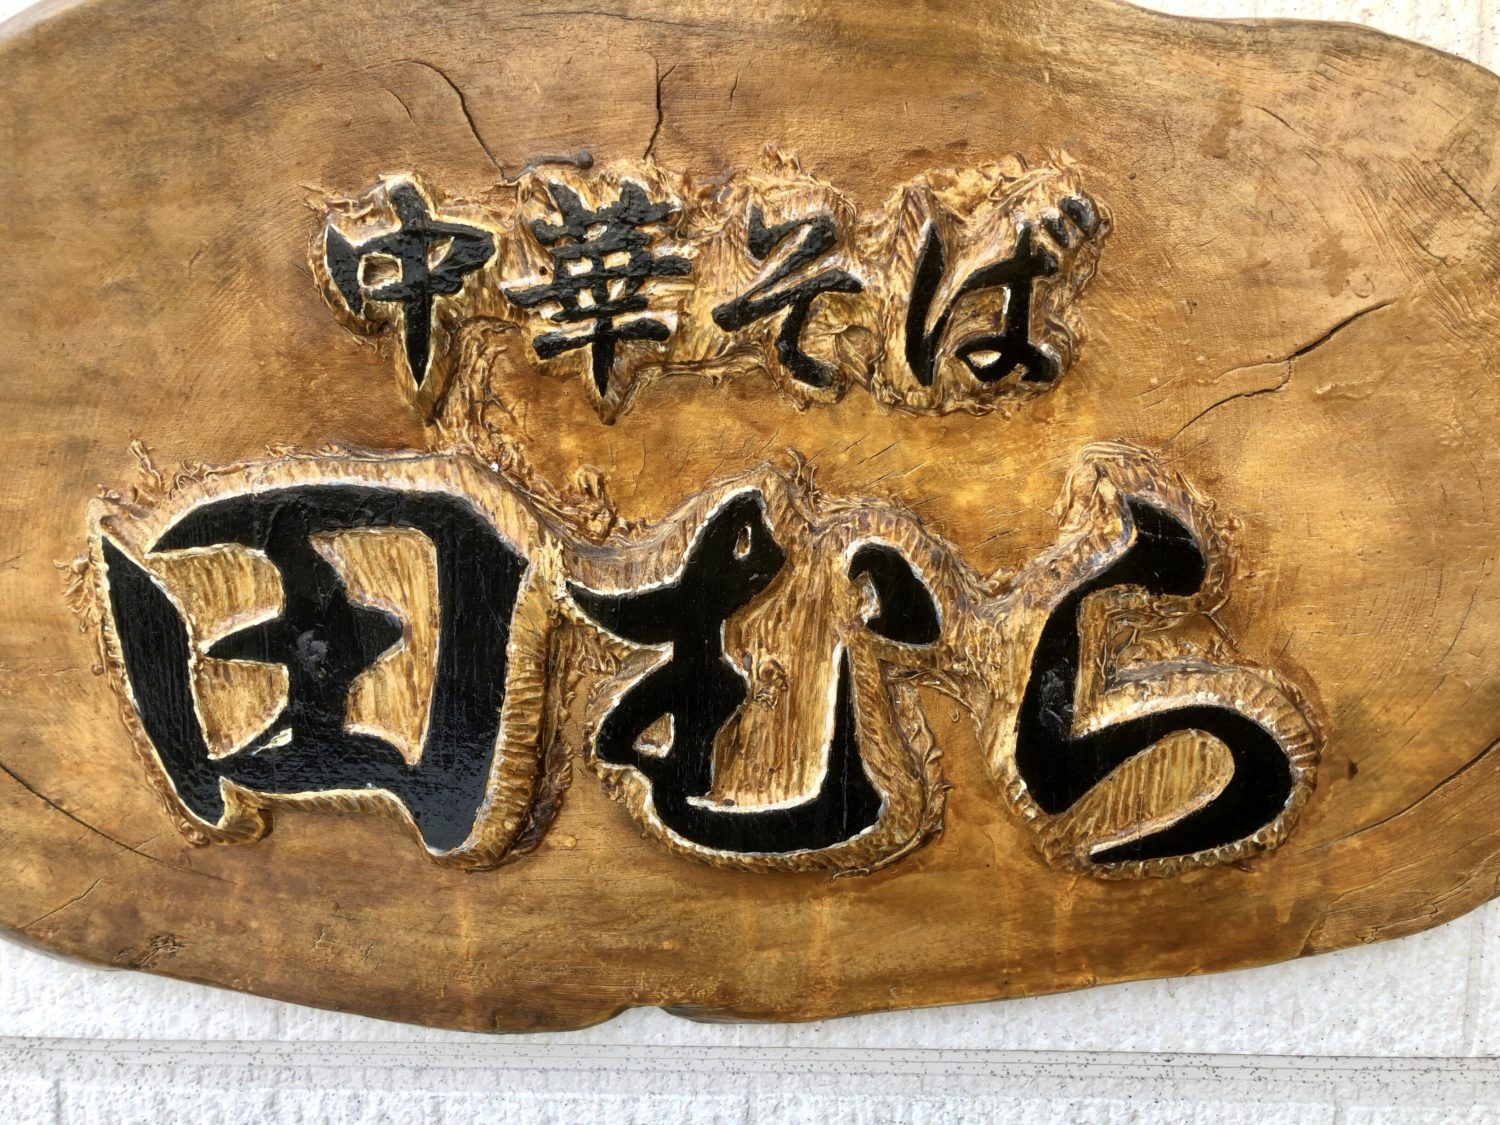 中華そば
田むら